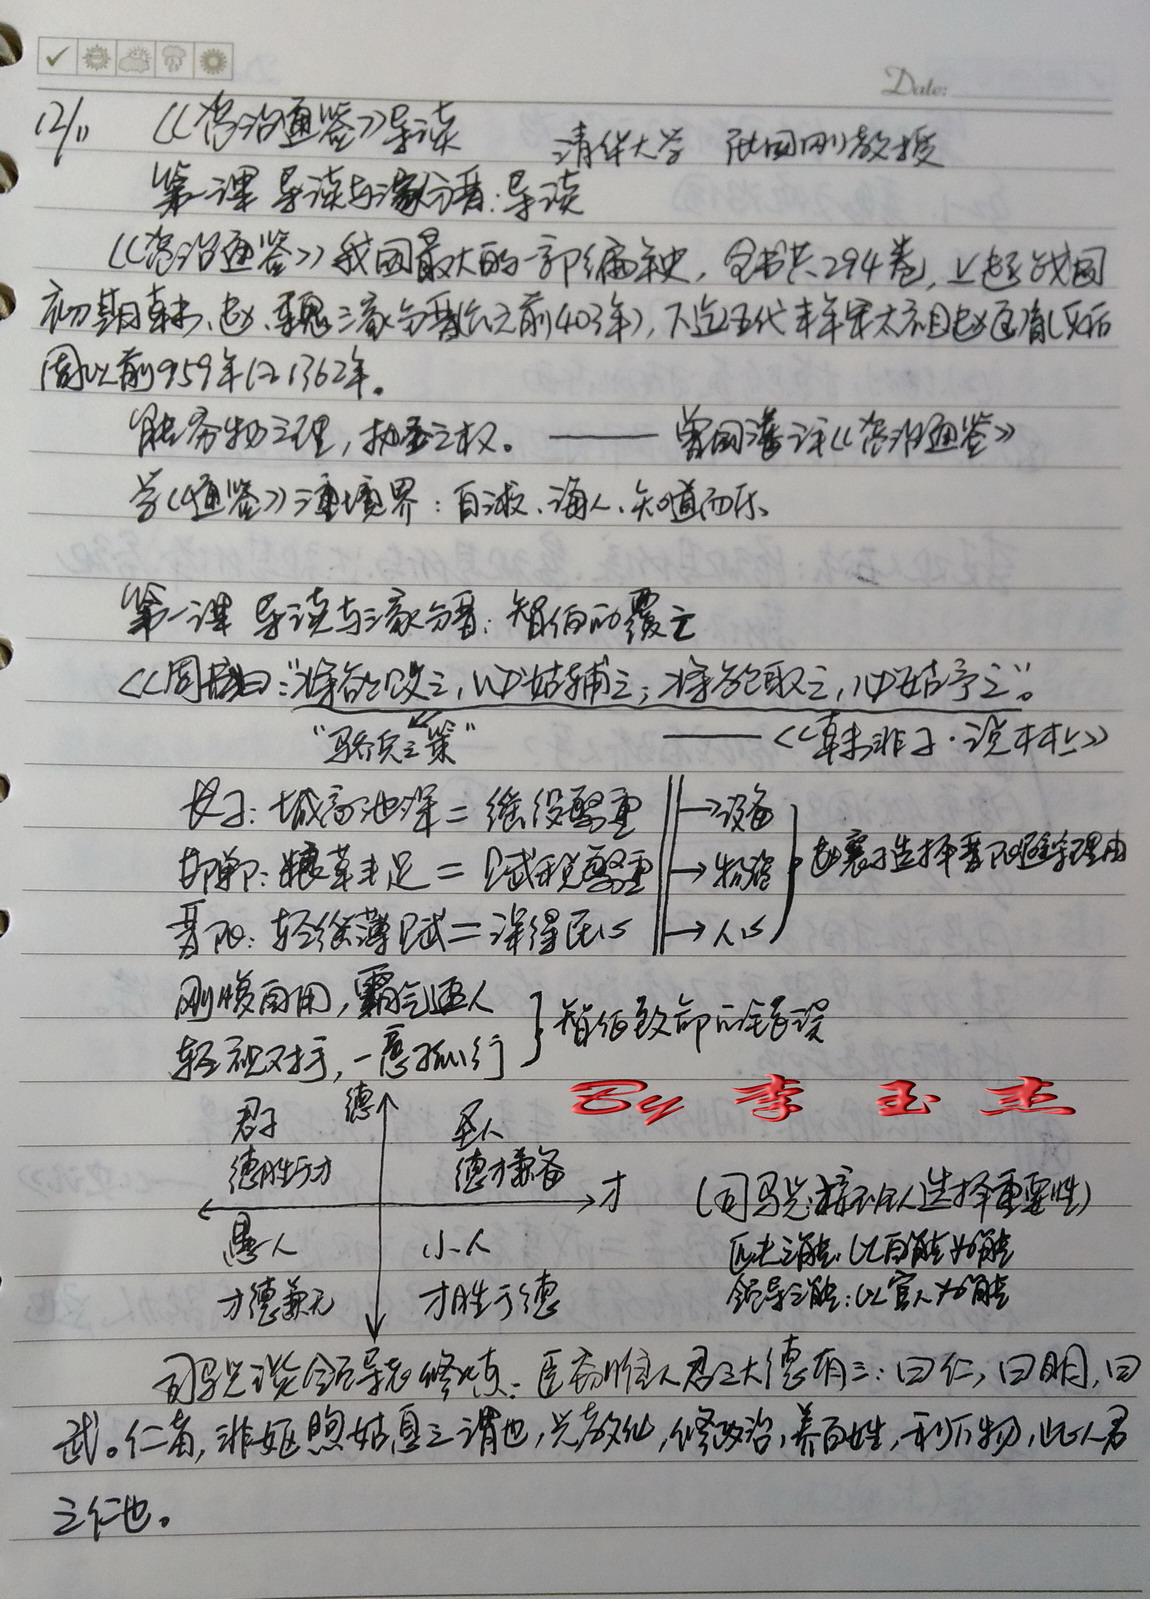 Date:
12/11 《资治通鉴》导读 清华大学 张国刚教授
第一课 导读与三家分晋:导读
《资治通鉴》我国最大的一部编年史,全书共294卷,上起战国
初期韩、赵、魏三家分晋(公元前403年),下迄五代末年宋太祖赵匡胤灭后
周以前959年 1362年。
能穷物之理,执圣之权。——曾国藩评《资治通鉴》
学《通鉴》三重境界:自淑、诲人、知道而乐
第一课 导读与三家分晋:智伯的覆亡
《周书》曰:“将欲败之,必姑辅之;将欲取之,必姑予之”。
“骄兵之策” ——《韩非子·说林上》
长子:城高池深=徭役繁重 →设备
邯郸:粮草丰足=赋税繁重 →物资 赵襄子选择晋阳避难理由
晋阳:轻徭薄赋=深得民心 →人心
刚愎自用,霸气逼人
轻视对手,一意孤行 智伯致命的错误
By 李玉杰
君子 德 圣人
德胜于才 德才兼备
才 (司马光接班人选择重要性)
愚人 小人 匹夫之能,以自能为能
才德兼无 才胜于德 领导之能:以官人为能
司马光谈领导者修炼:臣窃惟人君之大德有三:曰仁,曰明,曰
武。仁者,非妪煦姑息之谓也,兴教化,修政治,养百姓,利万物,此人君
之仁也。